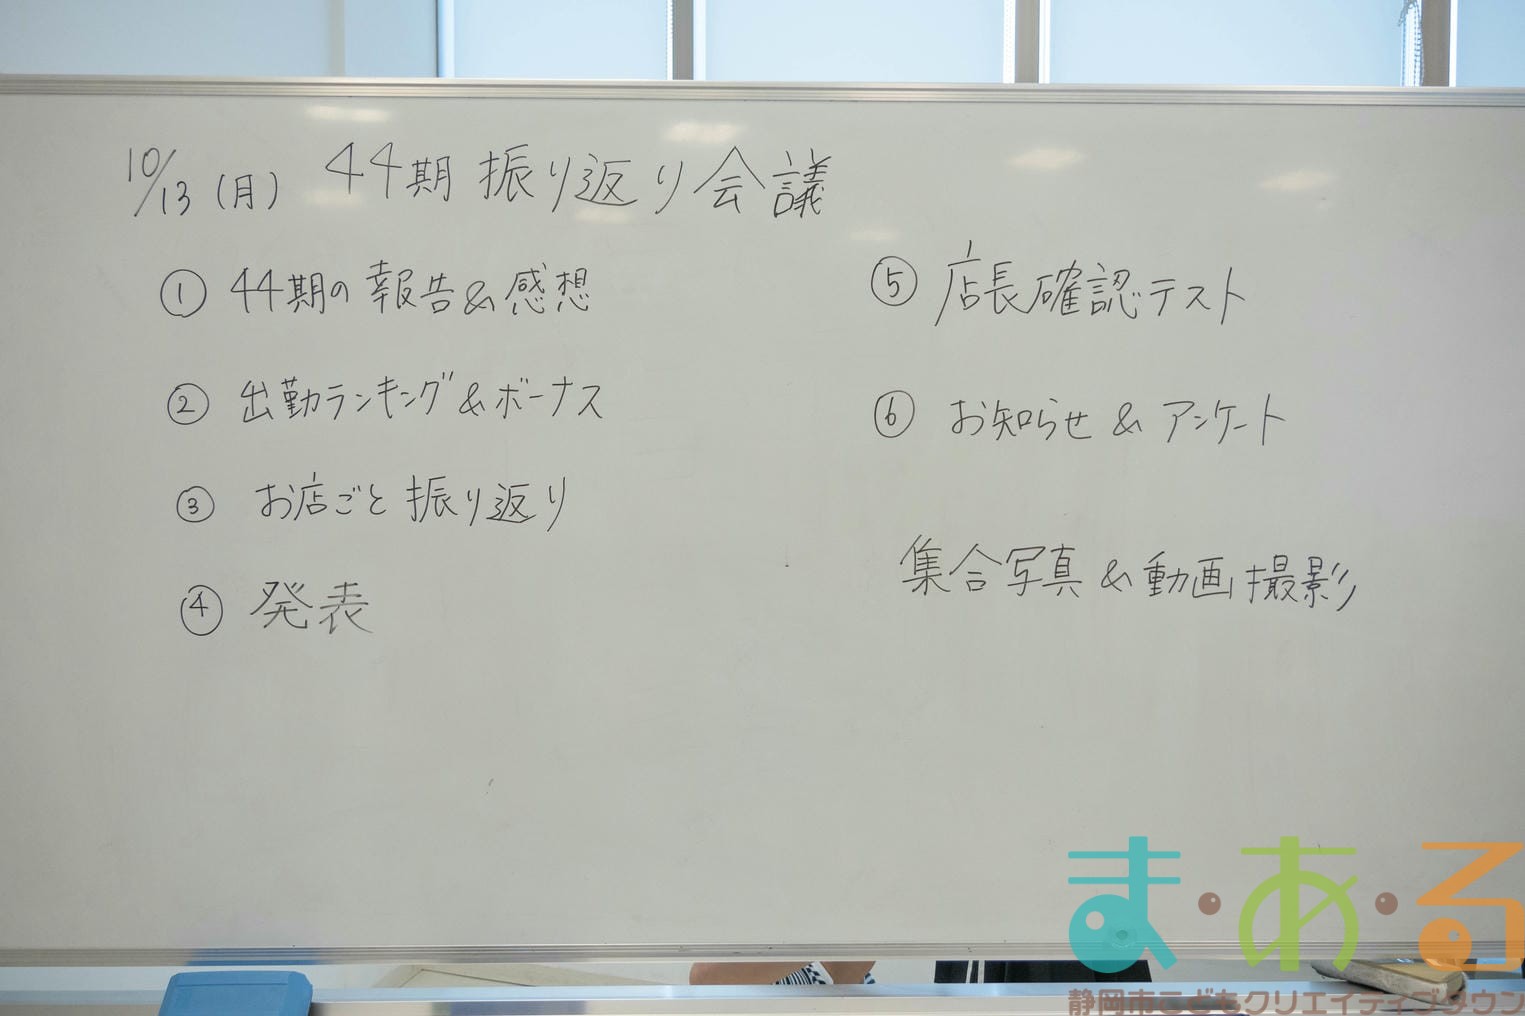 10/13(月) 44期 振り返り会議
① 44期の報告&感想
② 出勤ランキング&ボーナス
③ お店ごと振り返り
④ 発表
⑤ 店長確認テスト
⑥ お知らせ & アンケート
集合写真&動画撮影
ま・あ・る
静岡市こどもクリエイティブタウン